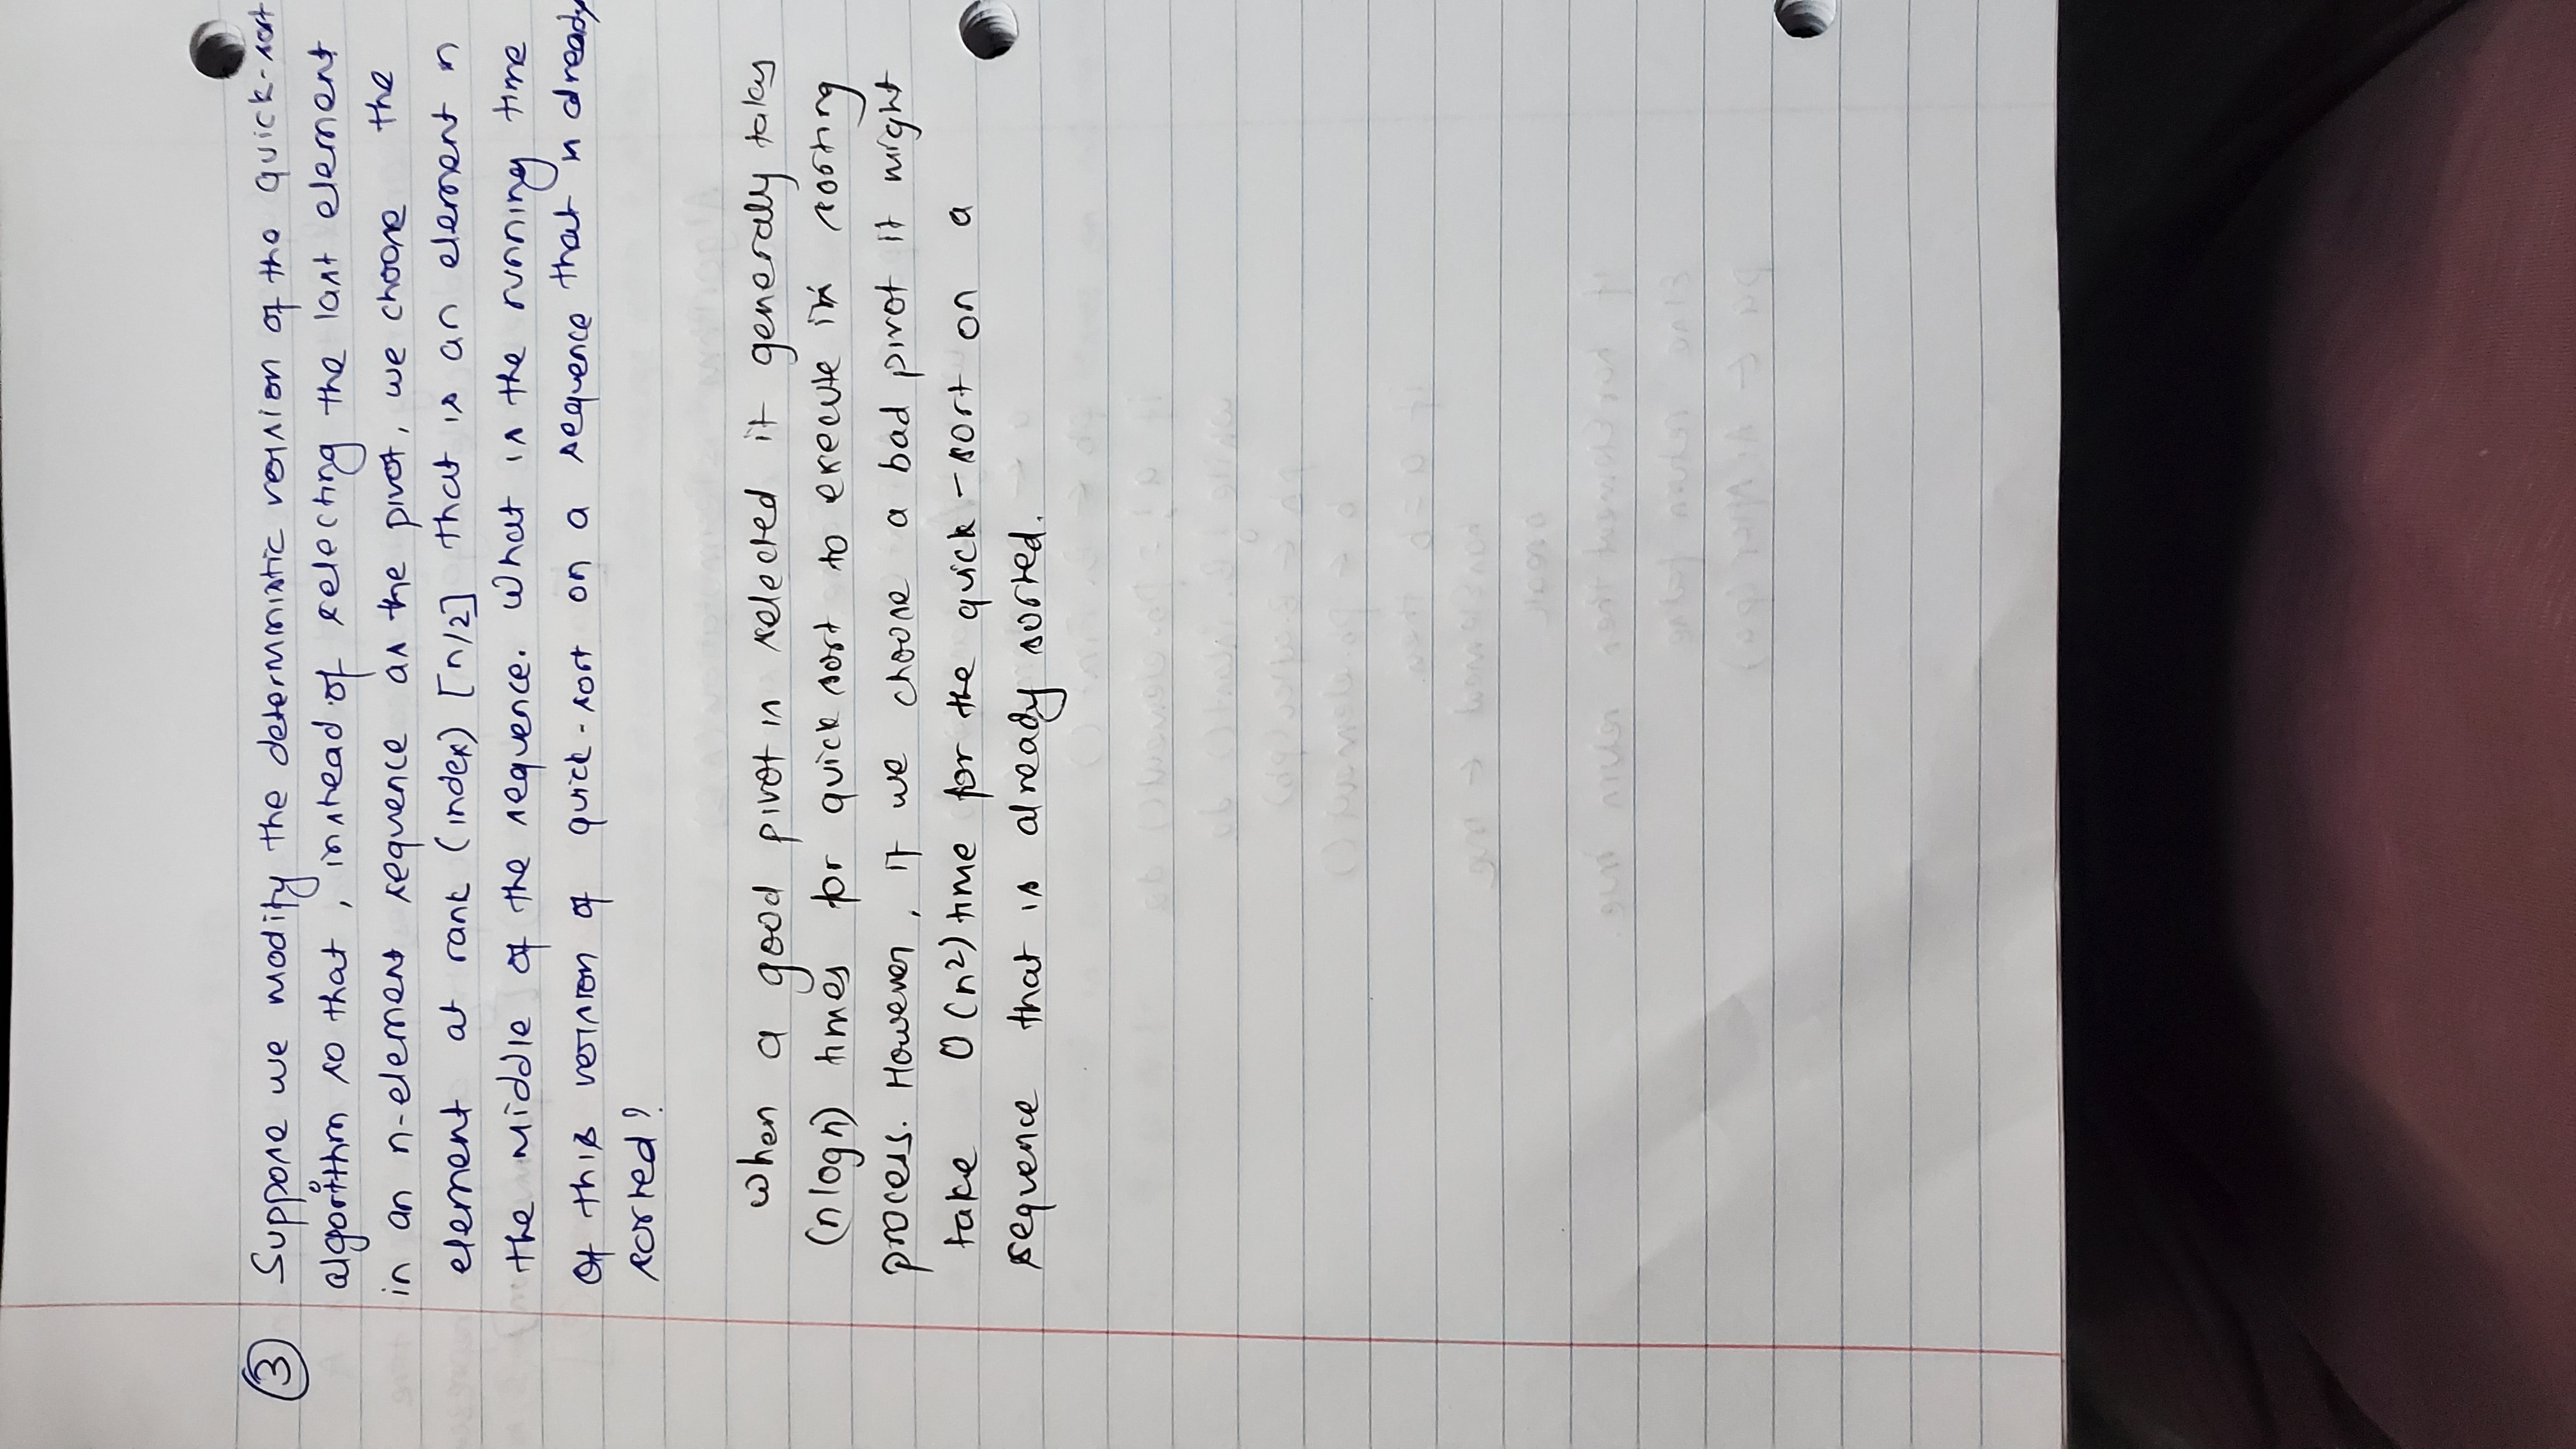 3 Suppose we modify the deterministic version of the quick-sort
algorithm so that, instead of selecting the last element
in an n-element sequence as the pivot, we choose the
element at rank (index) [n/2] that is an element in
the middle of the sequence. What is the running time
of this version of quick-sort on a sequence that is already
sorted?
When a good pivot is selected it generally takes
(nlogn) times for quick sort to execute its sorting
process. However, if we choose a bad pivot it might
take O(n²) time for the quick-sort on a
sequence that is already sorted.